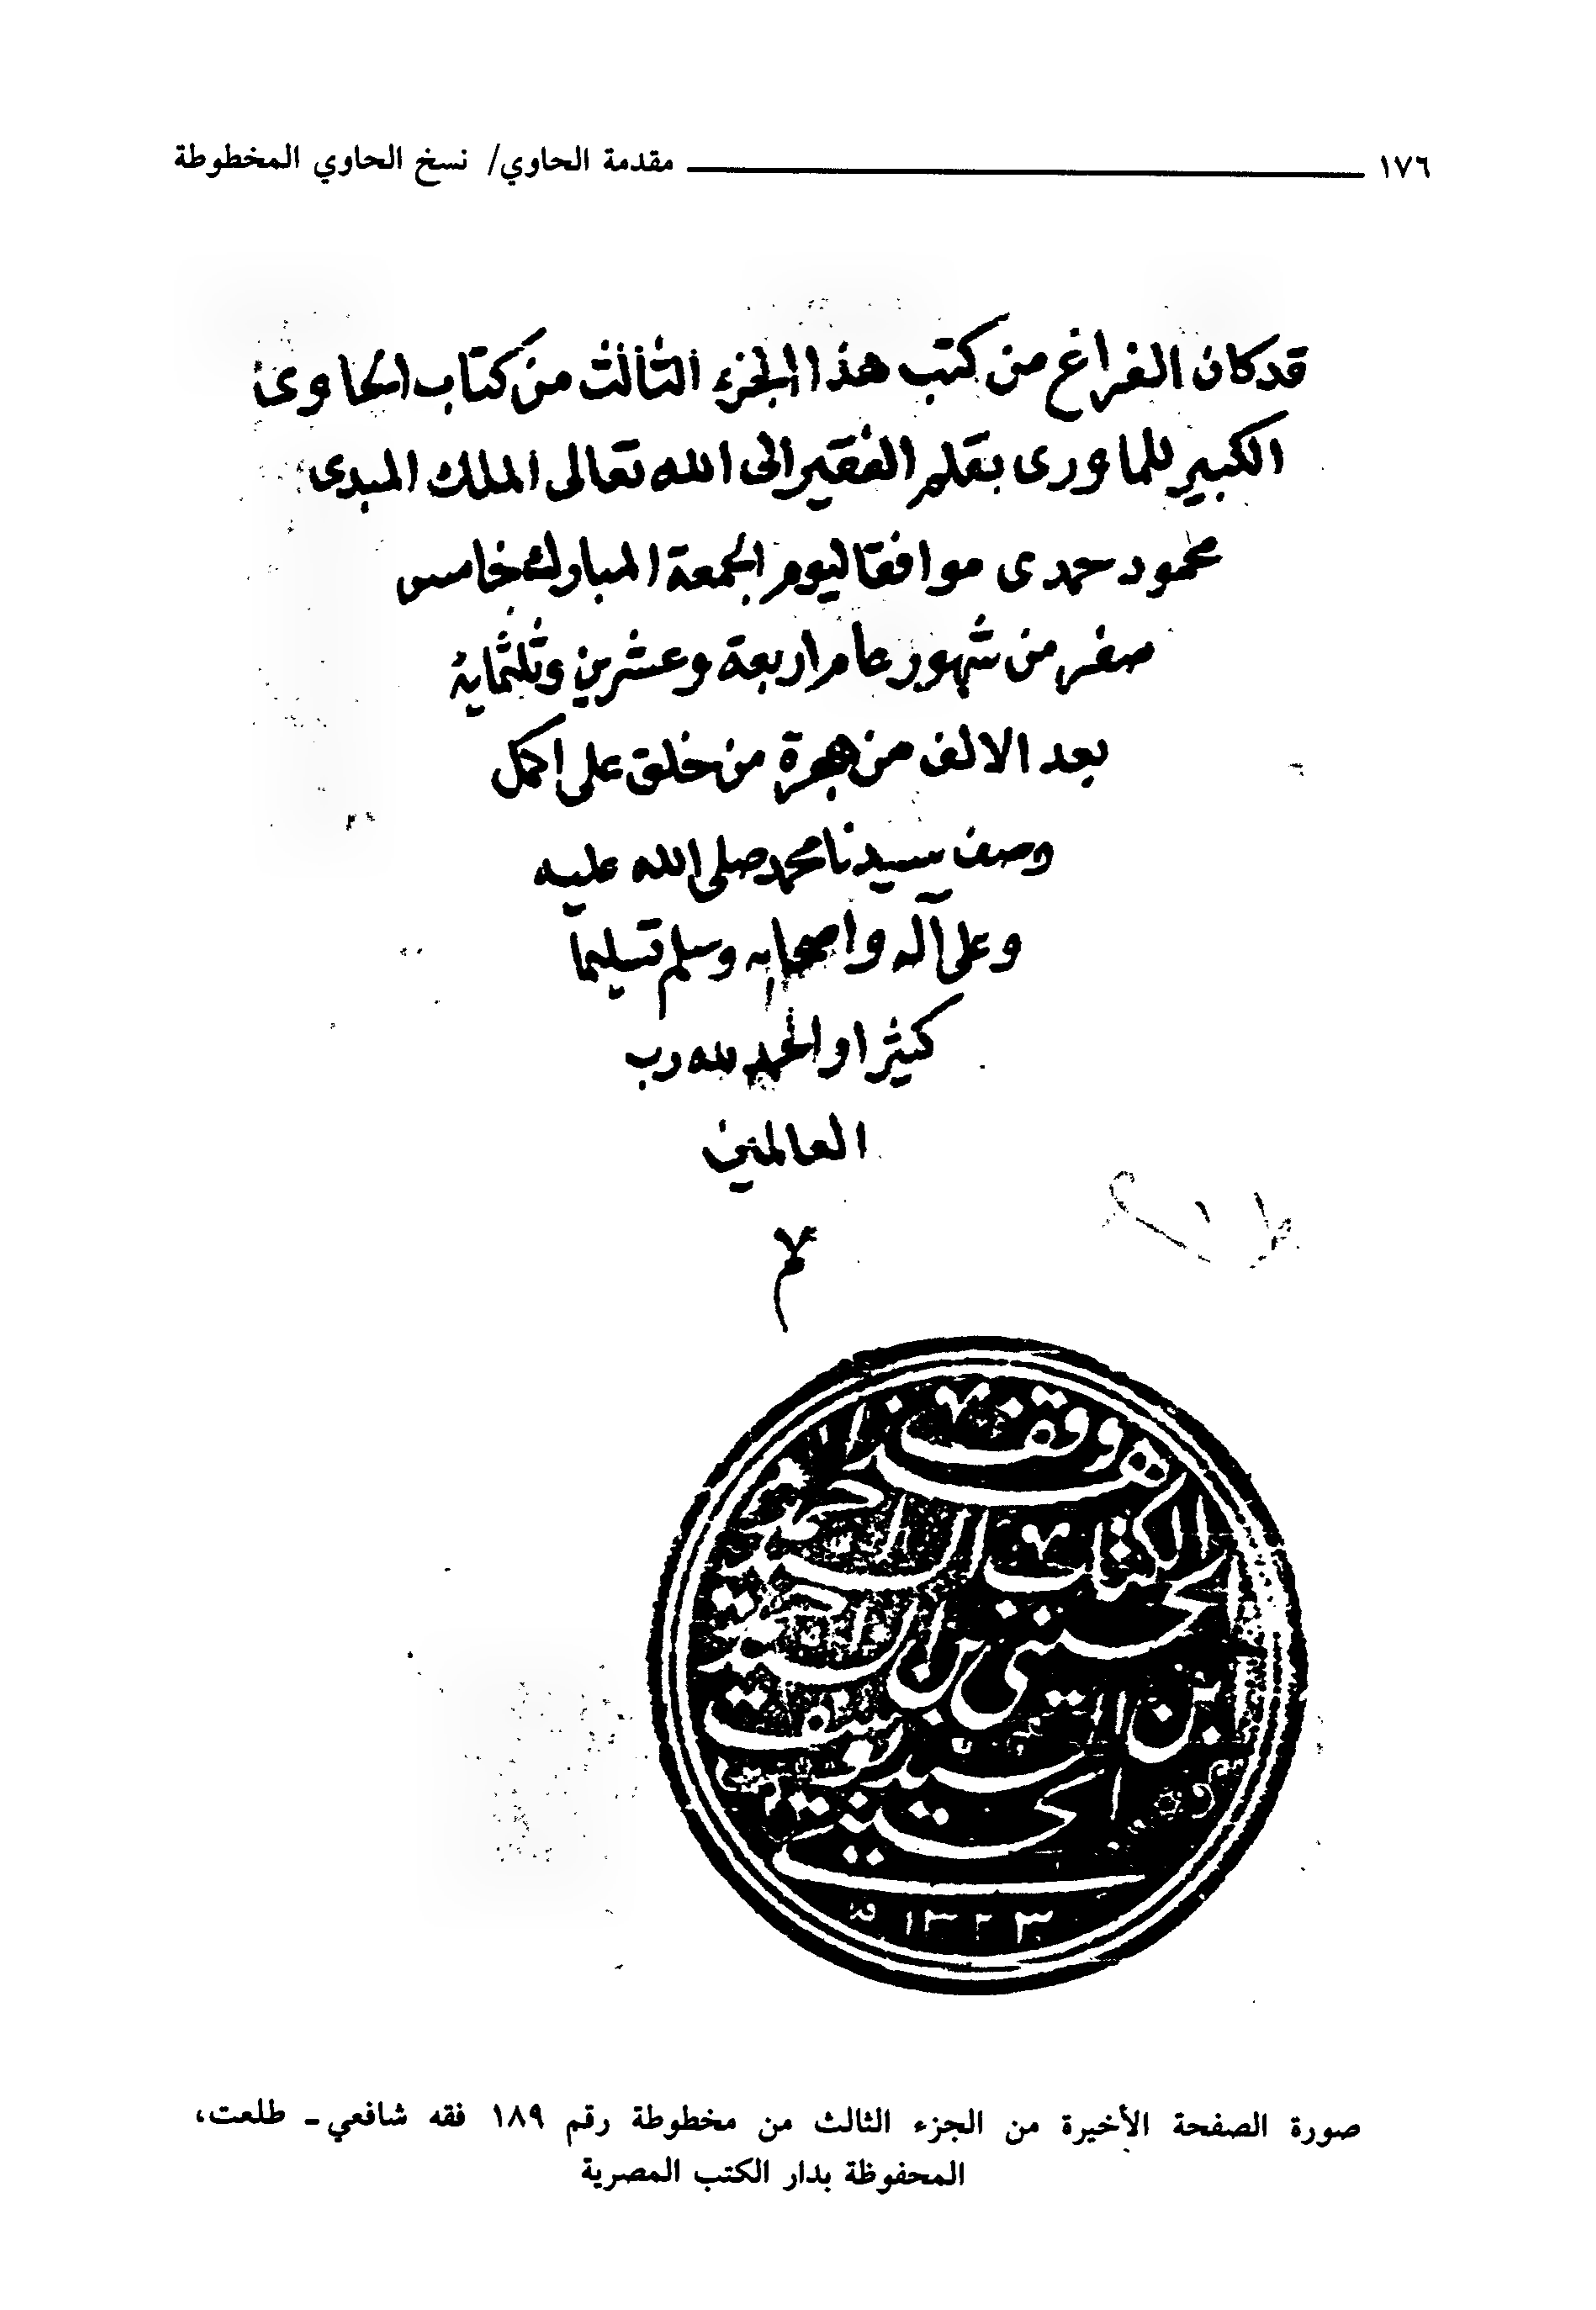 ١٧٦ مقدمة الحاوي/ نسخ الحاوي المخطوطة
قد كان الفراغ من كتب هذا الجزء الثالث من كتاب الحاوى
الكبير للماوردى بقلم الفقير الى الله تعالى الملك المبدى
محمود حمدى موافقا ليوم الجمعة المبارك خامس
صفر من شهور عام اربعة وعشرين وثلثماية
بعد الالف من هجرة من خلق على اكمل
وصف سيدنا محمد صلى الله عليه
وعلى آله واصحابه وسلم تسليما
كثيرا والحمد لله رب
العالمين
م
وقف هذا
الكتاب السيد احمد
الحسيني بن السيد احمد
بن السيد يوسف
الحسيني
١٣٢٣ هـ
صورة الصفحة الأخيرة من الجزء الثالث من مخطوطة رقم ١٨٩ فقه شافعي - طلعت،
المحفوظة بدار الكتب المصرية